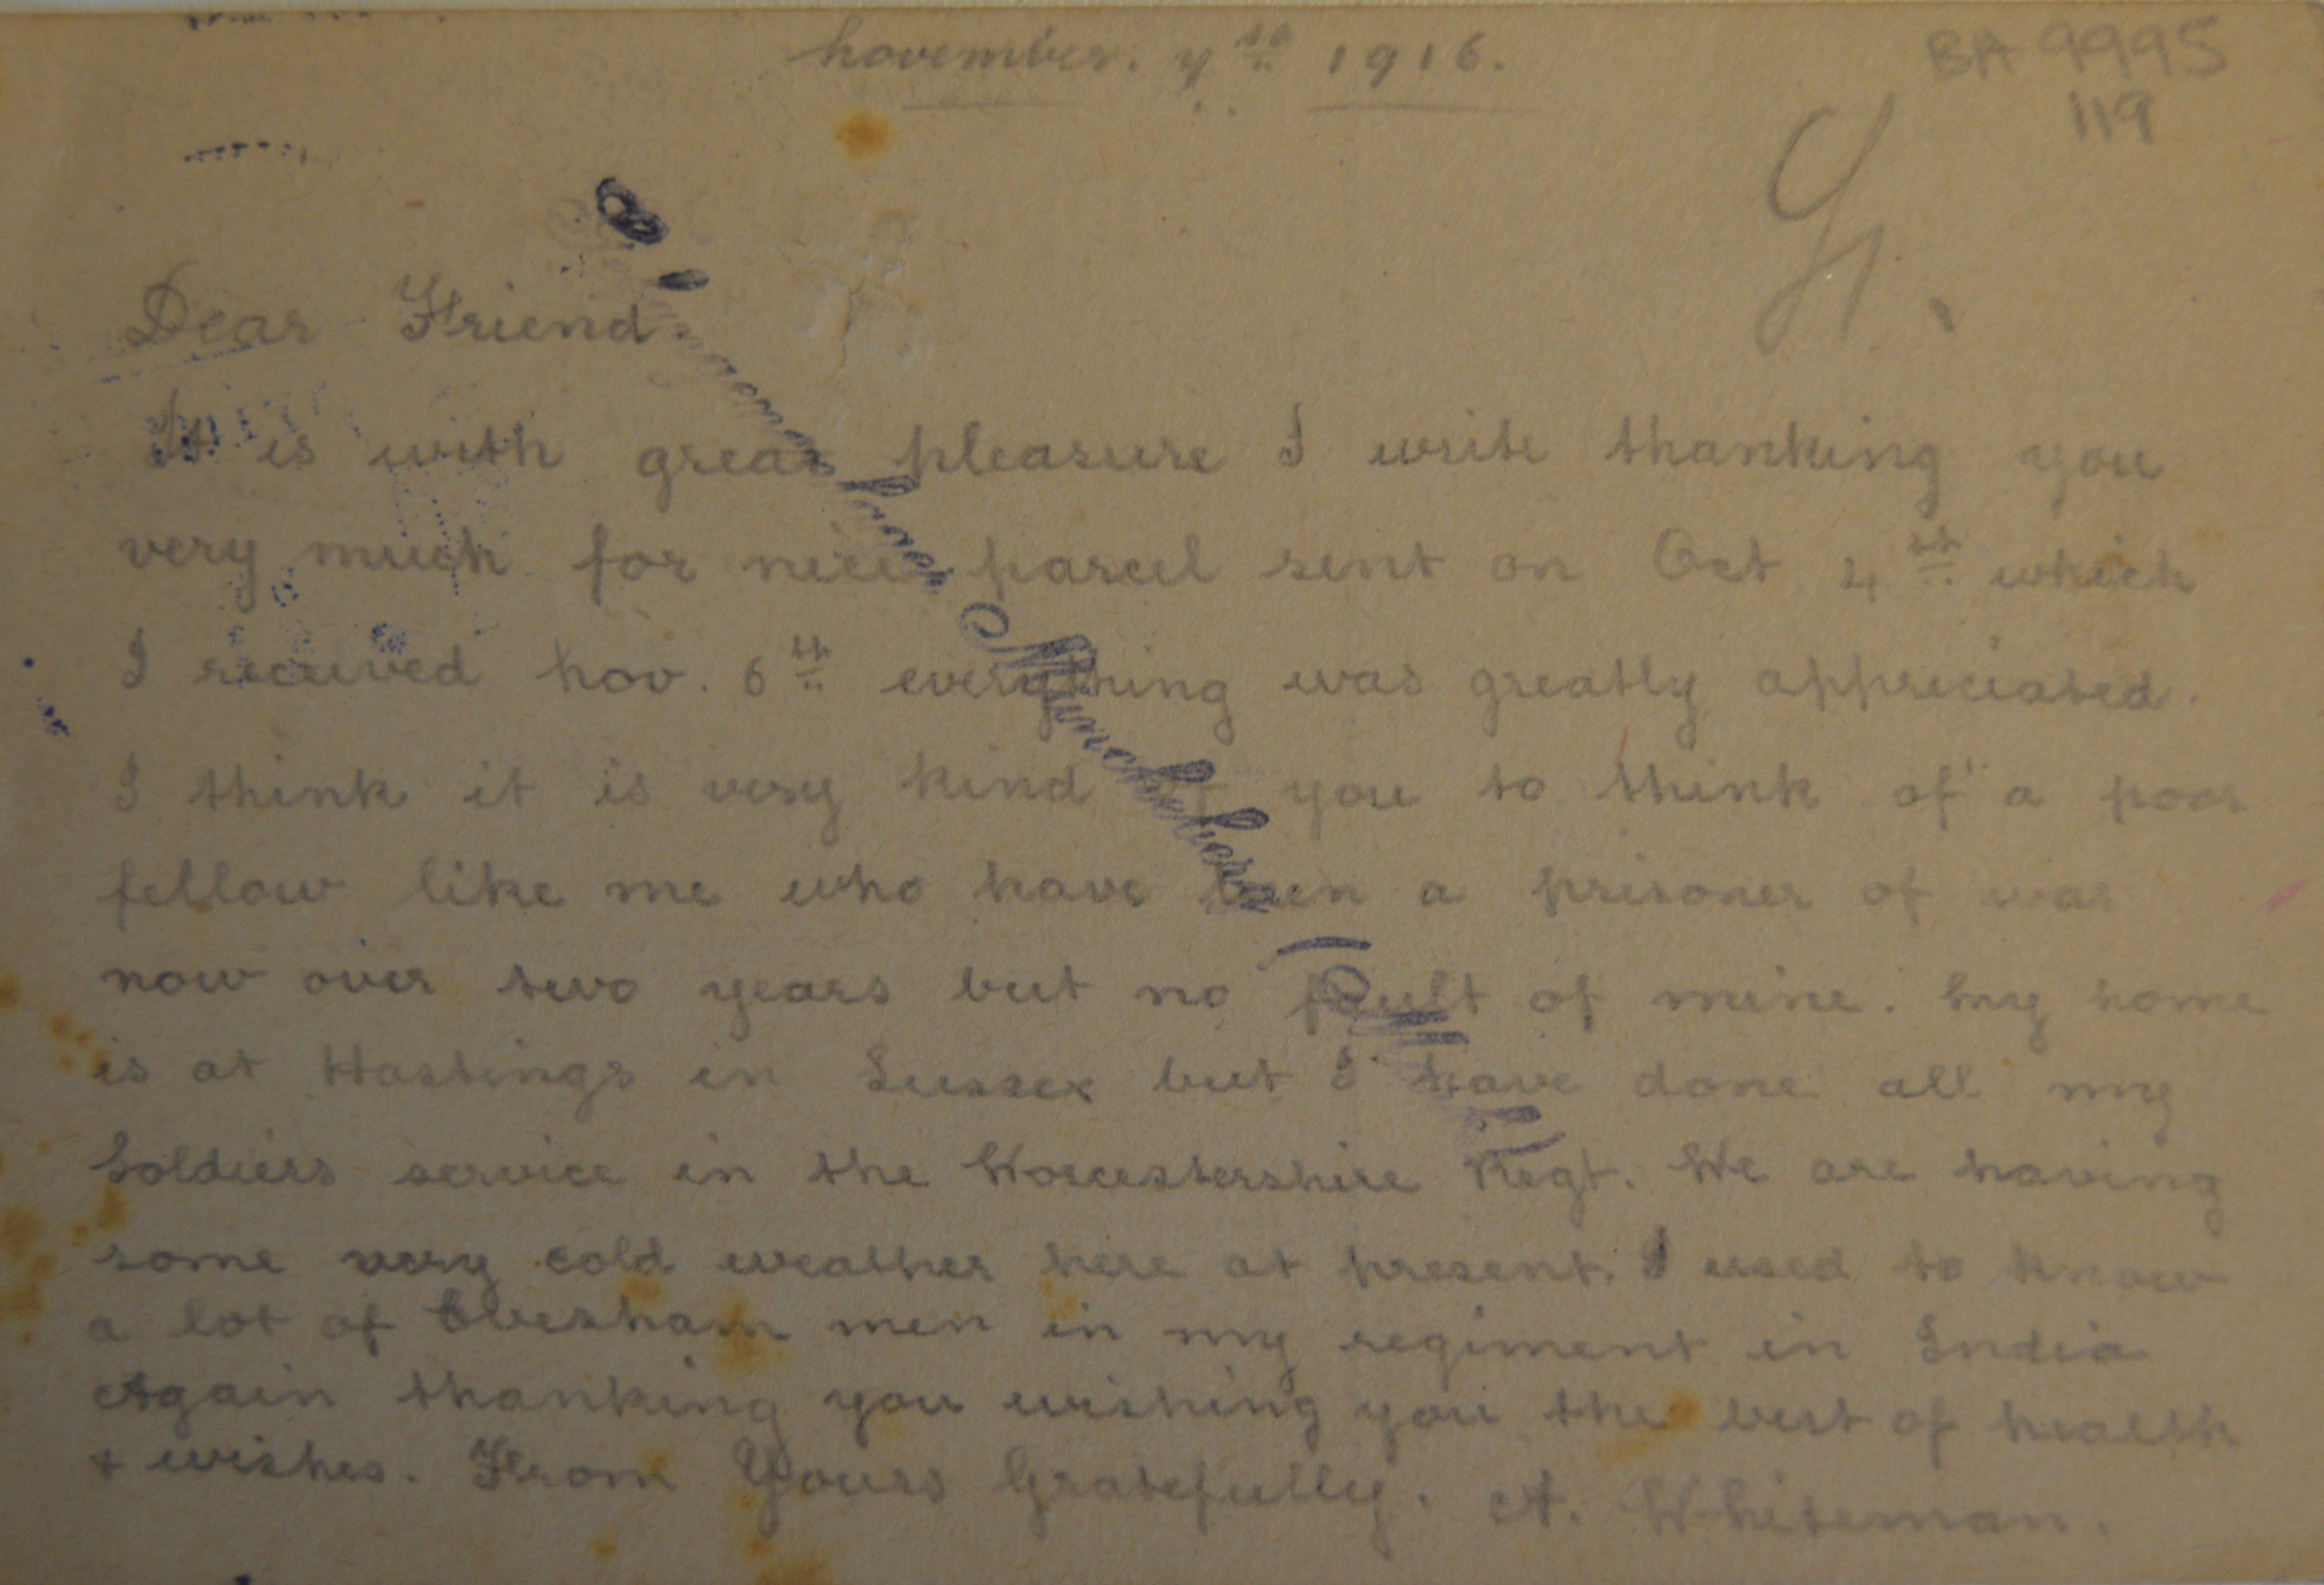 november. 7th 1916.
BA 9995
119
Dear Friend.
It is with great pleasure I write thanking you
very much for nice parcel sent on Oct 4th which
I received nov. 6th everything was greatly appreciated.
I think it is very kind of you to think of a poor
fellow like me who have been a prisoner of war
now over two years but no fault of mine. My home
is at Hastings in Sussex but I have done all my
Soldiers service in the Worcestershire Regt. We are having
some very cold weather here at present. I used to know
a lot of Evesham men in my regiment in India
Again thanking you wishing you the best of health
& wishes. From Yours Gratefully. A. Whiteman.